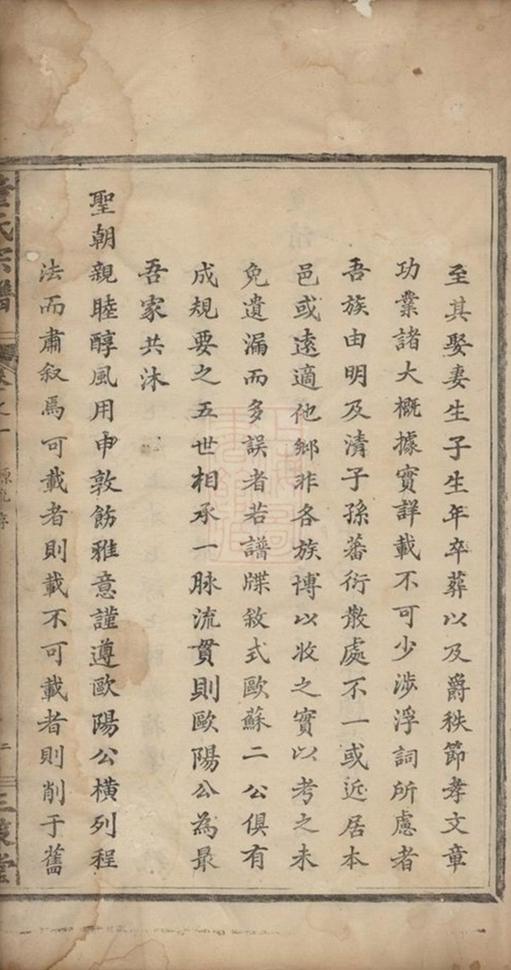 至其娶妻生子生年卒葬以及爵秩節孝文章
功業諸大概據實詳載不可少涉浮詞所慮者
吾族由明及清子孫蕃衍散處不一或近居本
邑或遠適他鄉非各族博以收之實以考之未
免遺漏而多誤者若譜牒敘式歐蘇二公俱有
成規要之五世相承一脉流貫則歐陽公為最
吾家共沐
聖朝親睦醇風用申敦飭雅意謹遵歐陽公橫列程
法而肅叙焉可載者則載不可載者則削于舊
氏宗譜